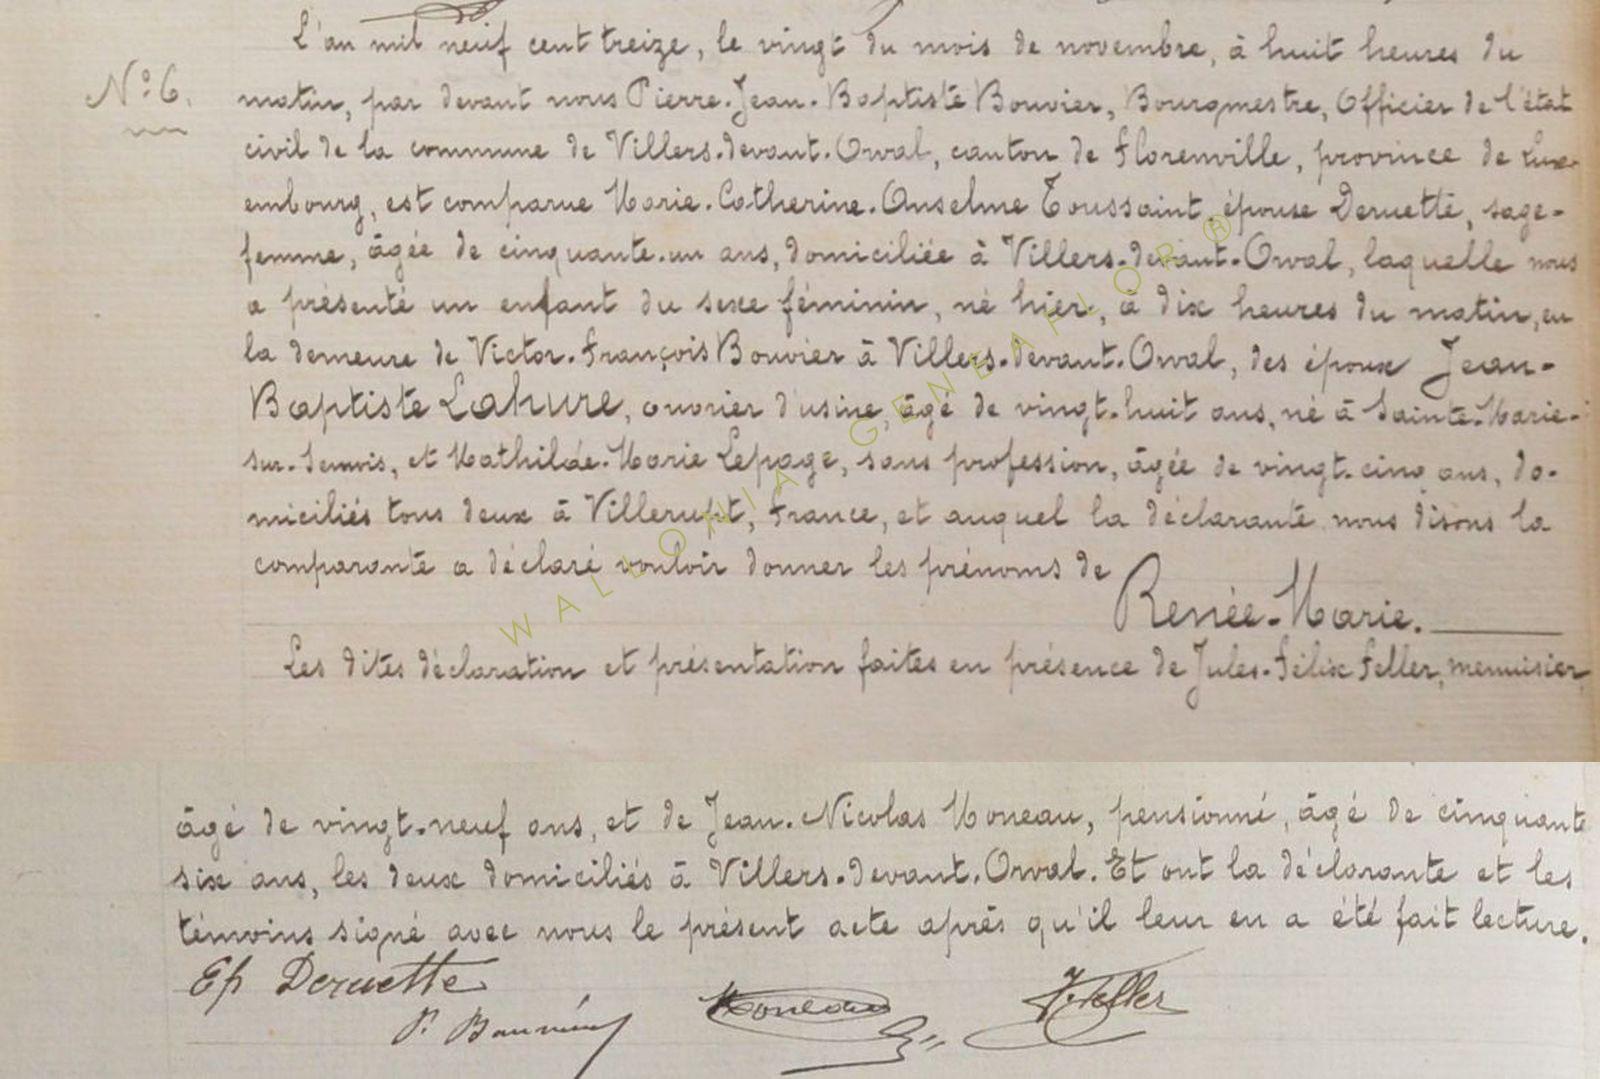 L'an mil neuf cent treize, le vingt du mois de novembre, à huit heures du
N° 6.
matin, par devant nous Pierre-Jean-Baptiste Bouvier, Bourgmestre, Officier de l'état
civil de la commune de Villers-devant-Orval, canton de Florenville, province de Lux-
embourg, est comparue Marie-Catherine-Anselme Toussaint, épouse Deruette, sage-
femme, âgée de cinquante-un ans, domiciliée à Villers-devant-Orval, laquelle nous
a présenté un enfant du sexe féminin, né hier, à dix heures du matin, en
la demeure de Victor-François Bouvier à Villers-devant-Orval, des époux Jean-
Baptiste Lahure, ouvrier d'usine, âgé de vingt-huit ans, né à Sainte-Marie-
sur-Semois, et Mathilde-Marie Lepage, sans profession, âgée de vingt-cinq ans, do-
miciliés tous deux à Villerupt, France, et auquel la déclarante nous disons la
comparante a déclaré vouloir donner les prénoms de
Renée-Marie.
Les dites déclaration et présentation faites en présence de Jules-Félix Feller, menuisier,
âgé de vingt-neuf ans, et de Jean-Nicolas Moneau, pensionné, âgé de cinquante
six ans, les deux domiciliés à Villers-devant-Orval. Et ont la déclarante et les
témoins signé avec nous le présent acte après qu'il leur en a été fait lecture.
Ep Deruette
P. Bouvier Moneau J. Feller
WALLONIA GENEAFLOR ®